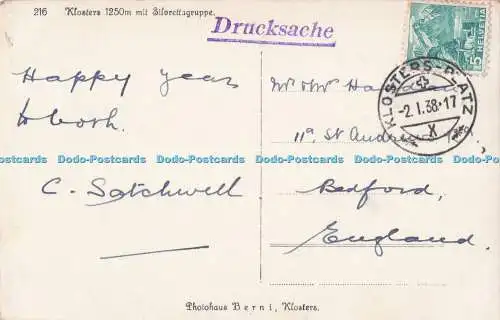 216 Klosters 1250m mit Silvrettagruppe.
Drucksache
HELVETIA
5
KLOSTERS-PLATZ
-2.I.38-17
X
Happy year
to both.
C. Satchwell
Mr & Mrs
11a, St Andrews
Bedford,
England.
Dodo-Postcards Dodo-Postcards Dodo-Postcards Dodo-Postcards Dodo-Postcards
Photohaus Berni, Klosters.